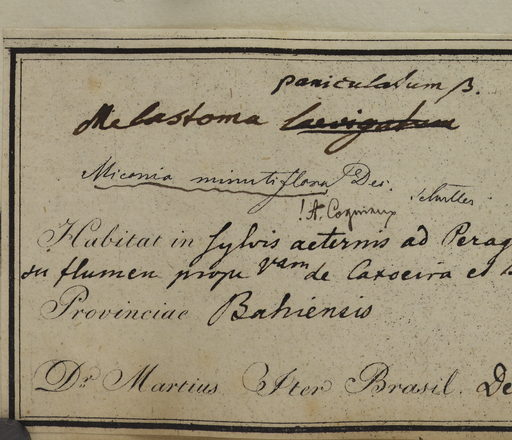 paniculatum β.
Melastoma laevigatum
Miconia minutiflora De.
! A. Cogniaux
Habitat in sylvis aeternis ad Perag
su flumen prope Vam de Caxoeira et
Provinciae Bahiensis
Dr. Martius Iter Brasil. De